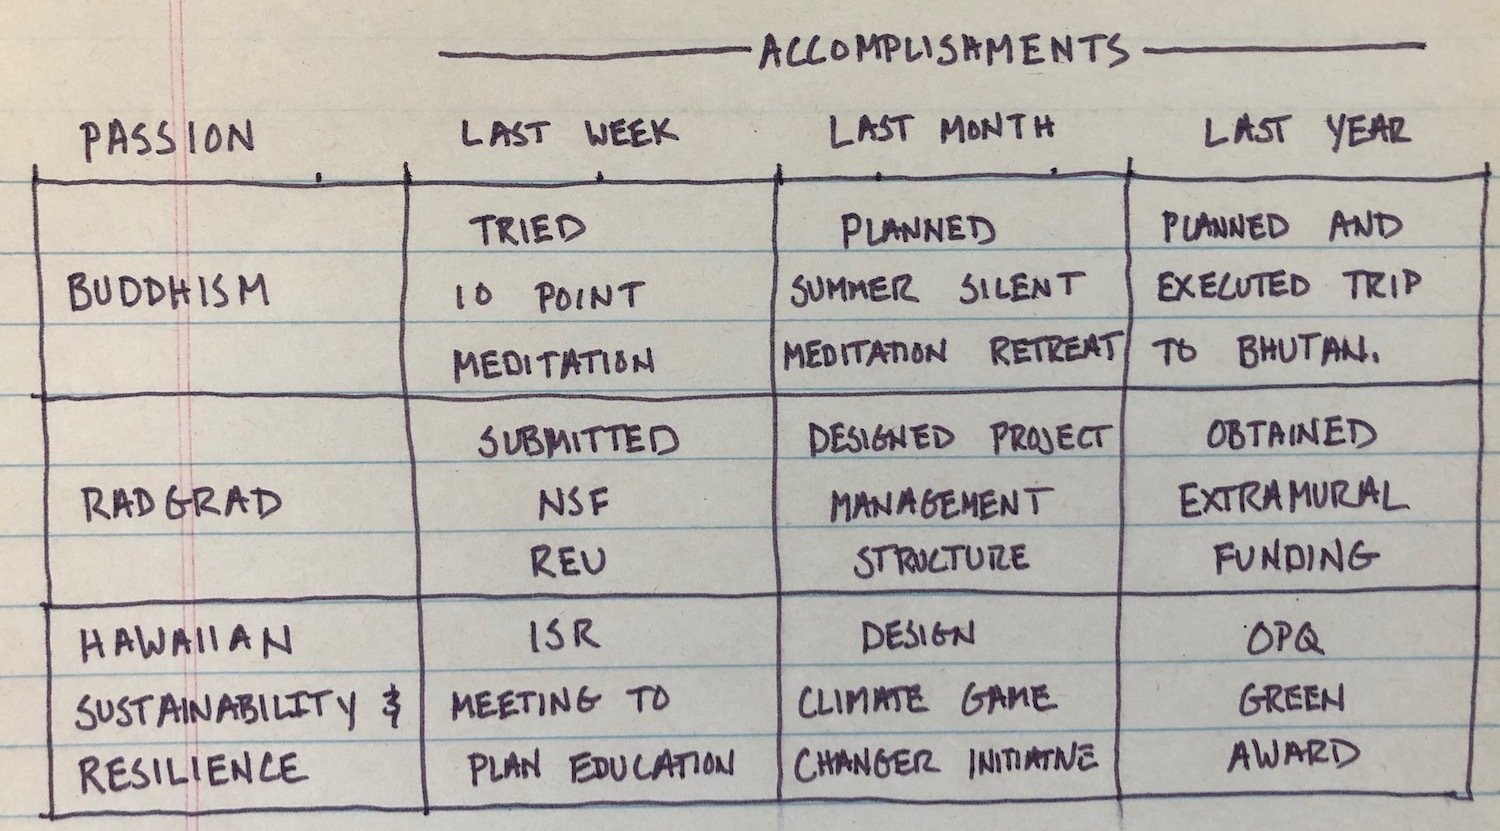 ACCOMPLISHMENTS
PASSION LAST WEEK LAST MONTH LAST YEAR
TRIED PLANNED PLANNED AND
BUDDHISM 10 POINT SUMMER SILENT EXECUTED TRIP
MEDITATION MEDITATION RETREAT TO BHUTAN.
SUBMITTED DESIGNED PROJECT OBTAINED
RADGRAD NSF MANAGEMENT EXTRAMURAL
REU STRUCTURE FUNDING
HAWAIIAN ISR DESIGN OPQ
SUSTAINABILITY & MEETING TO CLIMATE GAME GREEN
RESILIENCE PLAN EDUCATION CHANGER INITIATIVE AWARD